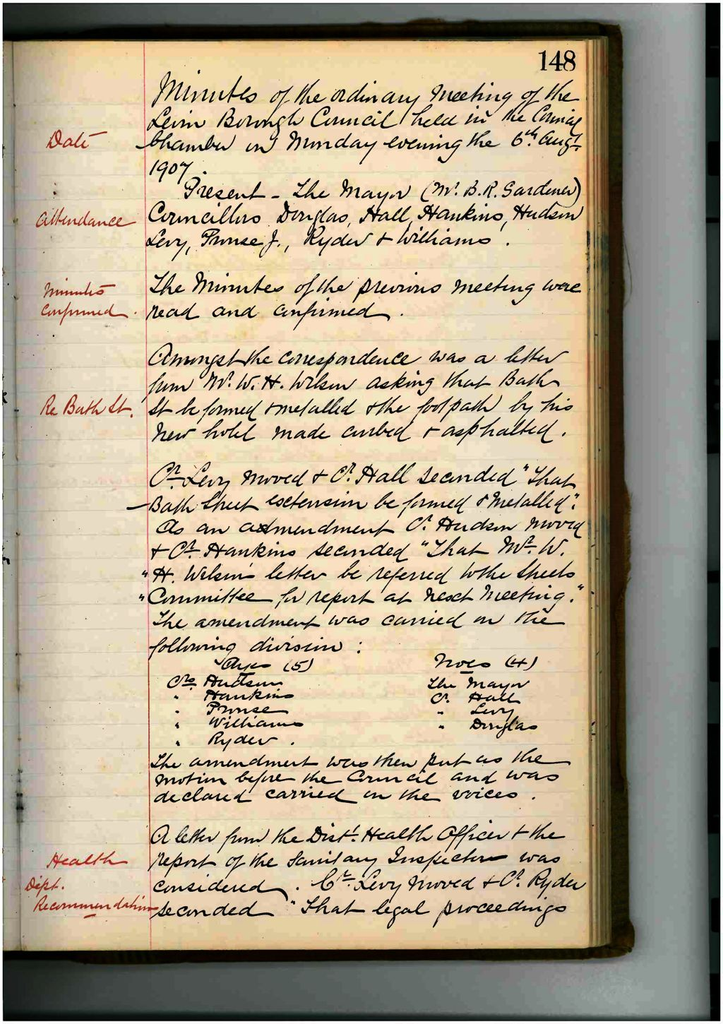 148
Minutes of the ordinary Meeting of the
Levin Borough Council held in the Council
Date
Chamber on Monday evening the 6th Augt.
1907.
Present - The Mayor (Mr. B. R. Gardener)
Attendance
Councillors Douglas, Hall, Hankins, Hudson
Levy, Prouse J., Ryder & Williams.
Minutes
confirmed.
The Minutes of the previous meeting were
read and confirmed.
Amongst the correspondence was a letter
from Mr. W. H. Wilson asking that Bath
Re Bath St.
St be formed & metalled & the footpath by his
new hotel made curbed & asphalted.
Cr. Levy moved & Cr. Hall seconded "That
Bath Street extension be formed & metalled".
As an admendment Cr. Hudson moved
& Cr. Hankins seconded "That Mr. W.
"H. Wilson's letter be referred to the Streets
"Committee for report at next Meeting."
The amendment was carried on the
following division:
Ayes (5) Noes (4)
Crs Hudson The Mayor
" Hankins Cr. Hall
" Prouse " Levy
" Williams " Douglas
" Ryder.
The amendment was then put as the
motion before the Council and was
declared carried on the voices.
A letter from the Dist. Health Officer & the
Health
Dept.
Recommendations
report of the Sanitary Inspector was
considered. Cr. Levy moved & Cr. Ryder
seconded "That legal proceedings